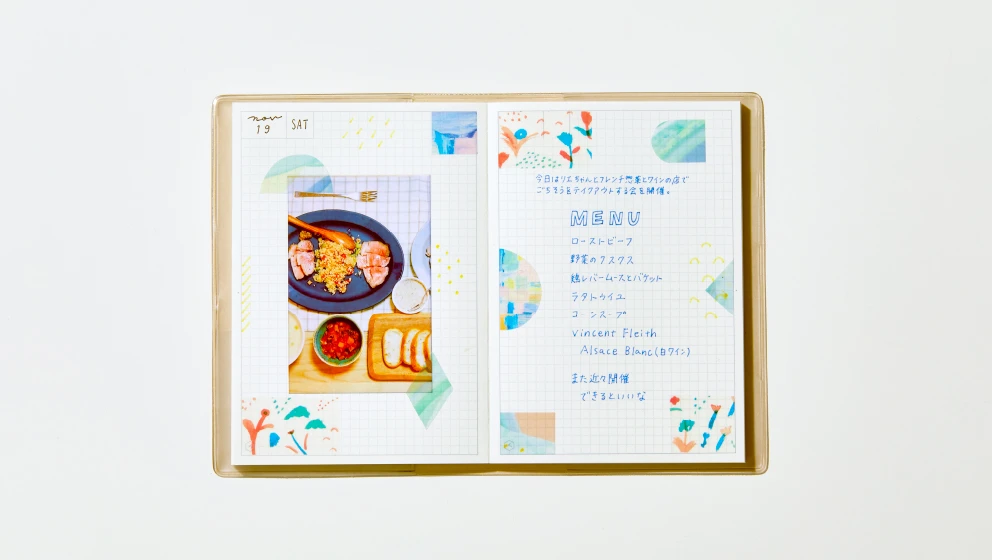 nov
19
SAT
今日はリエちゃんとフレンチ惣菜とワインの店で
ごちそうをテイクアウトする会を開催。
MENU
ローストビーフ
野菜のクスクス
鶏レバームースとバケット
ラタトゥイユ
コーンスープ
Vincent Fleith
Alsace Blanc(白ワイン)
また近々開催
できるといいな